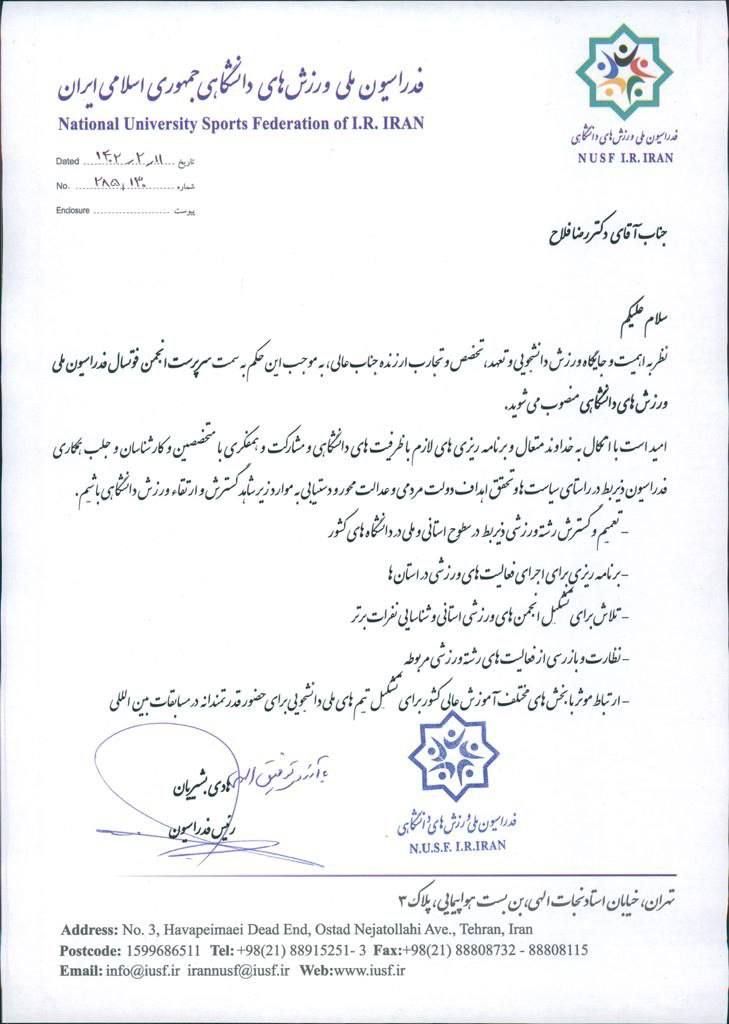 فدراسیون ملی ورزش‌های دانشگاهی جمهوری اسلامی ایران
National University Sports Federation of I.R. IRAN
فدراسیون ملی ورزش‌های دانشگاهی
NUSF I.R.IRAN
Dated ۱۴۰۲/۲/۱۱ تاریخ
No. ۲۸۵،۱۳۰ شماره
Enclosure پیوست
جناب آقای دکتر رضا فلاح
سلام علیکم
نظر به اهمیت و جایگاه ورزش دانشجویی و تعهد، تخصص و تجارب ارزنده جناب عالی، به موجب این حکم به سمت سرپرست انجمن فوتسال فدراسیون ملی
ورزش های دانشگاهی منصوب می شوید.
امید است با اتکال به خداوند متعال و برنامه ریزی های لازم با ظرفیت های دانشگاهی و مشارکت و همفکری با متخصصین و کارشناسان و جلب همکاری
فدراسیون ذیربط در راستای سیاست ها و تحقق اهداف دولت مردمی و عدالت محور و دستیابی به موارد زیر شاهد گسترش و ارتقاء ورزش دانشگاهی باشیم.
- تعمیم و گسترش رشته ورزشی ذیربط در سطوح استانی و ملی در دانشگاه های کشور
- برنامه ریزی برای اجرای فعالیت های ورزشی در استان ها
- تلاش برای تشکیل انجمن های ورزشی استانی و شناسایی نفرات برتر
- نظارت و بازرسی از فعالیت های رشته ورزشی مربوطه
- ارتباط موثر با بخش های مختلف آموزش عالی کشور برای تشکیل تیم های ملی دانشجویی برای حضور قدرتمندانه در مسابقات بین المللی
با آرزوی توفیق الهی
هادی بشیریان
رئیس فدراسیون
فدراسیون ملی ورزش‌های دانشگاهی
N.U.S.F. I.R.IRAN
تهران، خیابان استاد نجات الهی، بن بست هواپیمایی، پلاک ۳
Address: No. 3, Havapeimaei Dead End, Ostad Nejatollahi Ave., Tehran, Iran
Postcode: 1599686511 Tel: +98(21) 88915251- 3 Fax:+98(21) 88808732 - 88808115
Email: info@iusf.ir irannusf@iusf.ir Web:www.iusf.ir